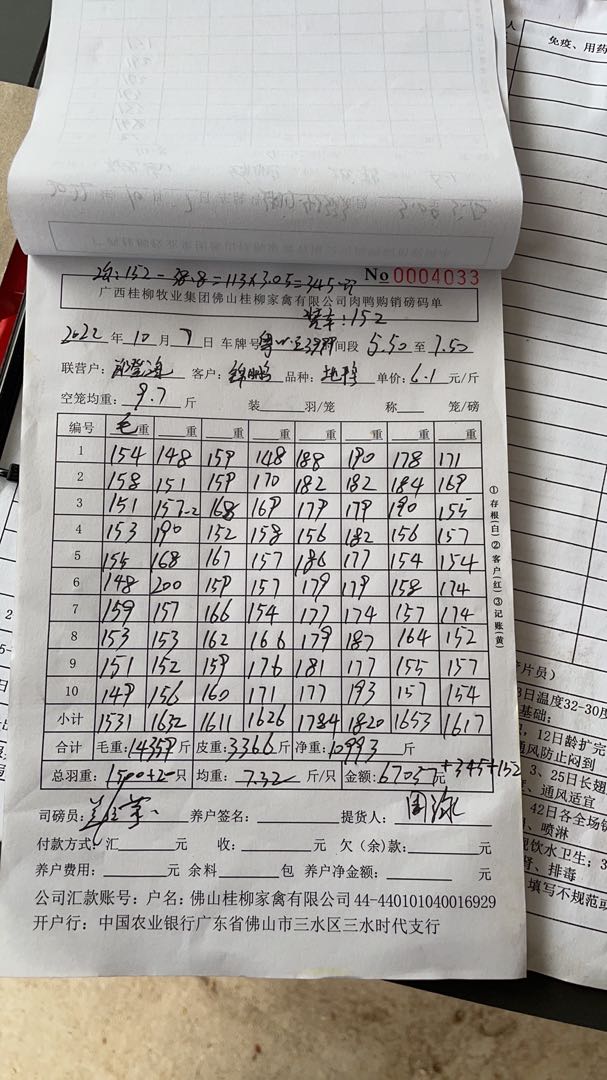 免疫、用药
No 0004033
152-38.8=113×3.05=345元
广西桂柳牧业集团佛山桂柳家禽有限公司肉鸭购销磅码单
装车:152
2022年10月7日 车牌号 时间段5.50至7.50
联营户: 客户: 品种: 单价:6.1元/斤
空笼均重:9.7斤 装 羽/笼 称 笼/磅
编号 毛重 重 重 重 重 重 重 重
1 154 148 159 148 188 190 178 171
2 158 151 159 170 182 182 184 169
3 151 157-2 168 169 179 179 190 155
4 153 190 152 158 156 182 156 157
5 155 168 167 157 186 177 154 154
6 148 200 159 157 179 179 158 174
7 159 157 166 154 177 174 157 174
8 153 153 162 166 179 187 164 152
9 151 152 159 176 181 177 155 157
10 149 156 160 171 177 193 157 154
小计 1531 1632 1611 1626 1784 1820 1653 1617
合计 毛重:14359斤 皮重:3366斤 净重:10993斤
总羽重:1500+2只 均重:7.32斤/只 金额:67057元+345+152
①存根(白)②客户(红)③记账(黄)
司磅员: 养户签名: 提货人:
付款方式:汇 元 收: 元 欠(余)款: 元
养户费用: 元 余料 包 养户净金额: 元
公司汇款账号:户名:佛山桂柳家禽有限公司44-440101040016929
开户行:中国农业银行广东省佛山市三水区三水时代支行
片员)
日温度32-30度
基础;
,12日龄扩完
通风防止闷到
3、25日长翅
、通风适宜
42日各全场
、喷淋
饮水卫生;3
肾、排毒
填写不规范或